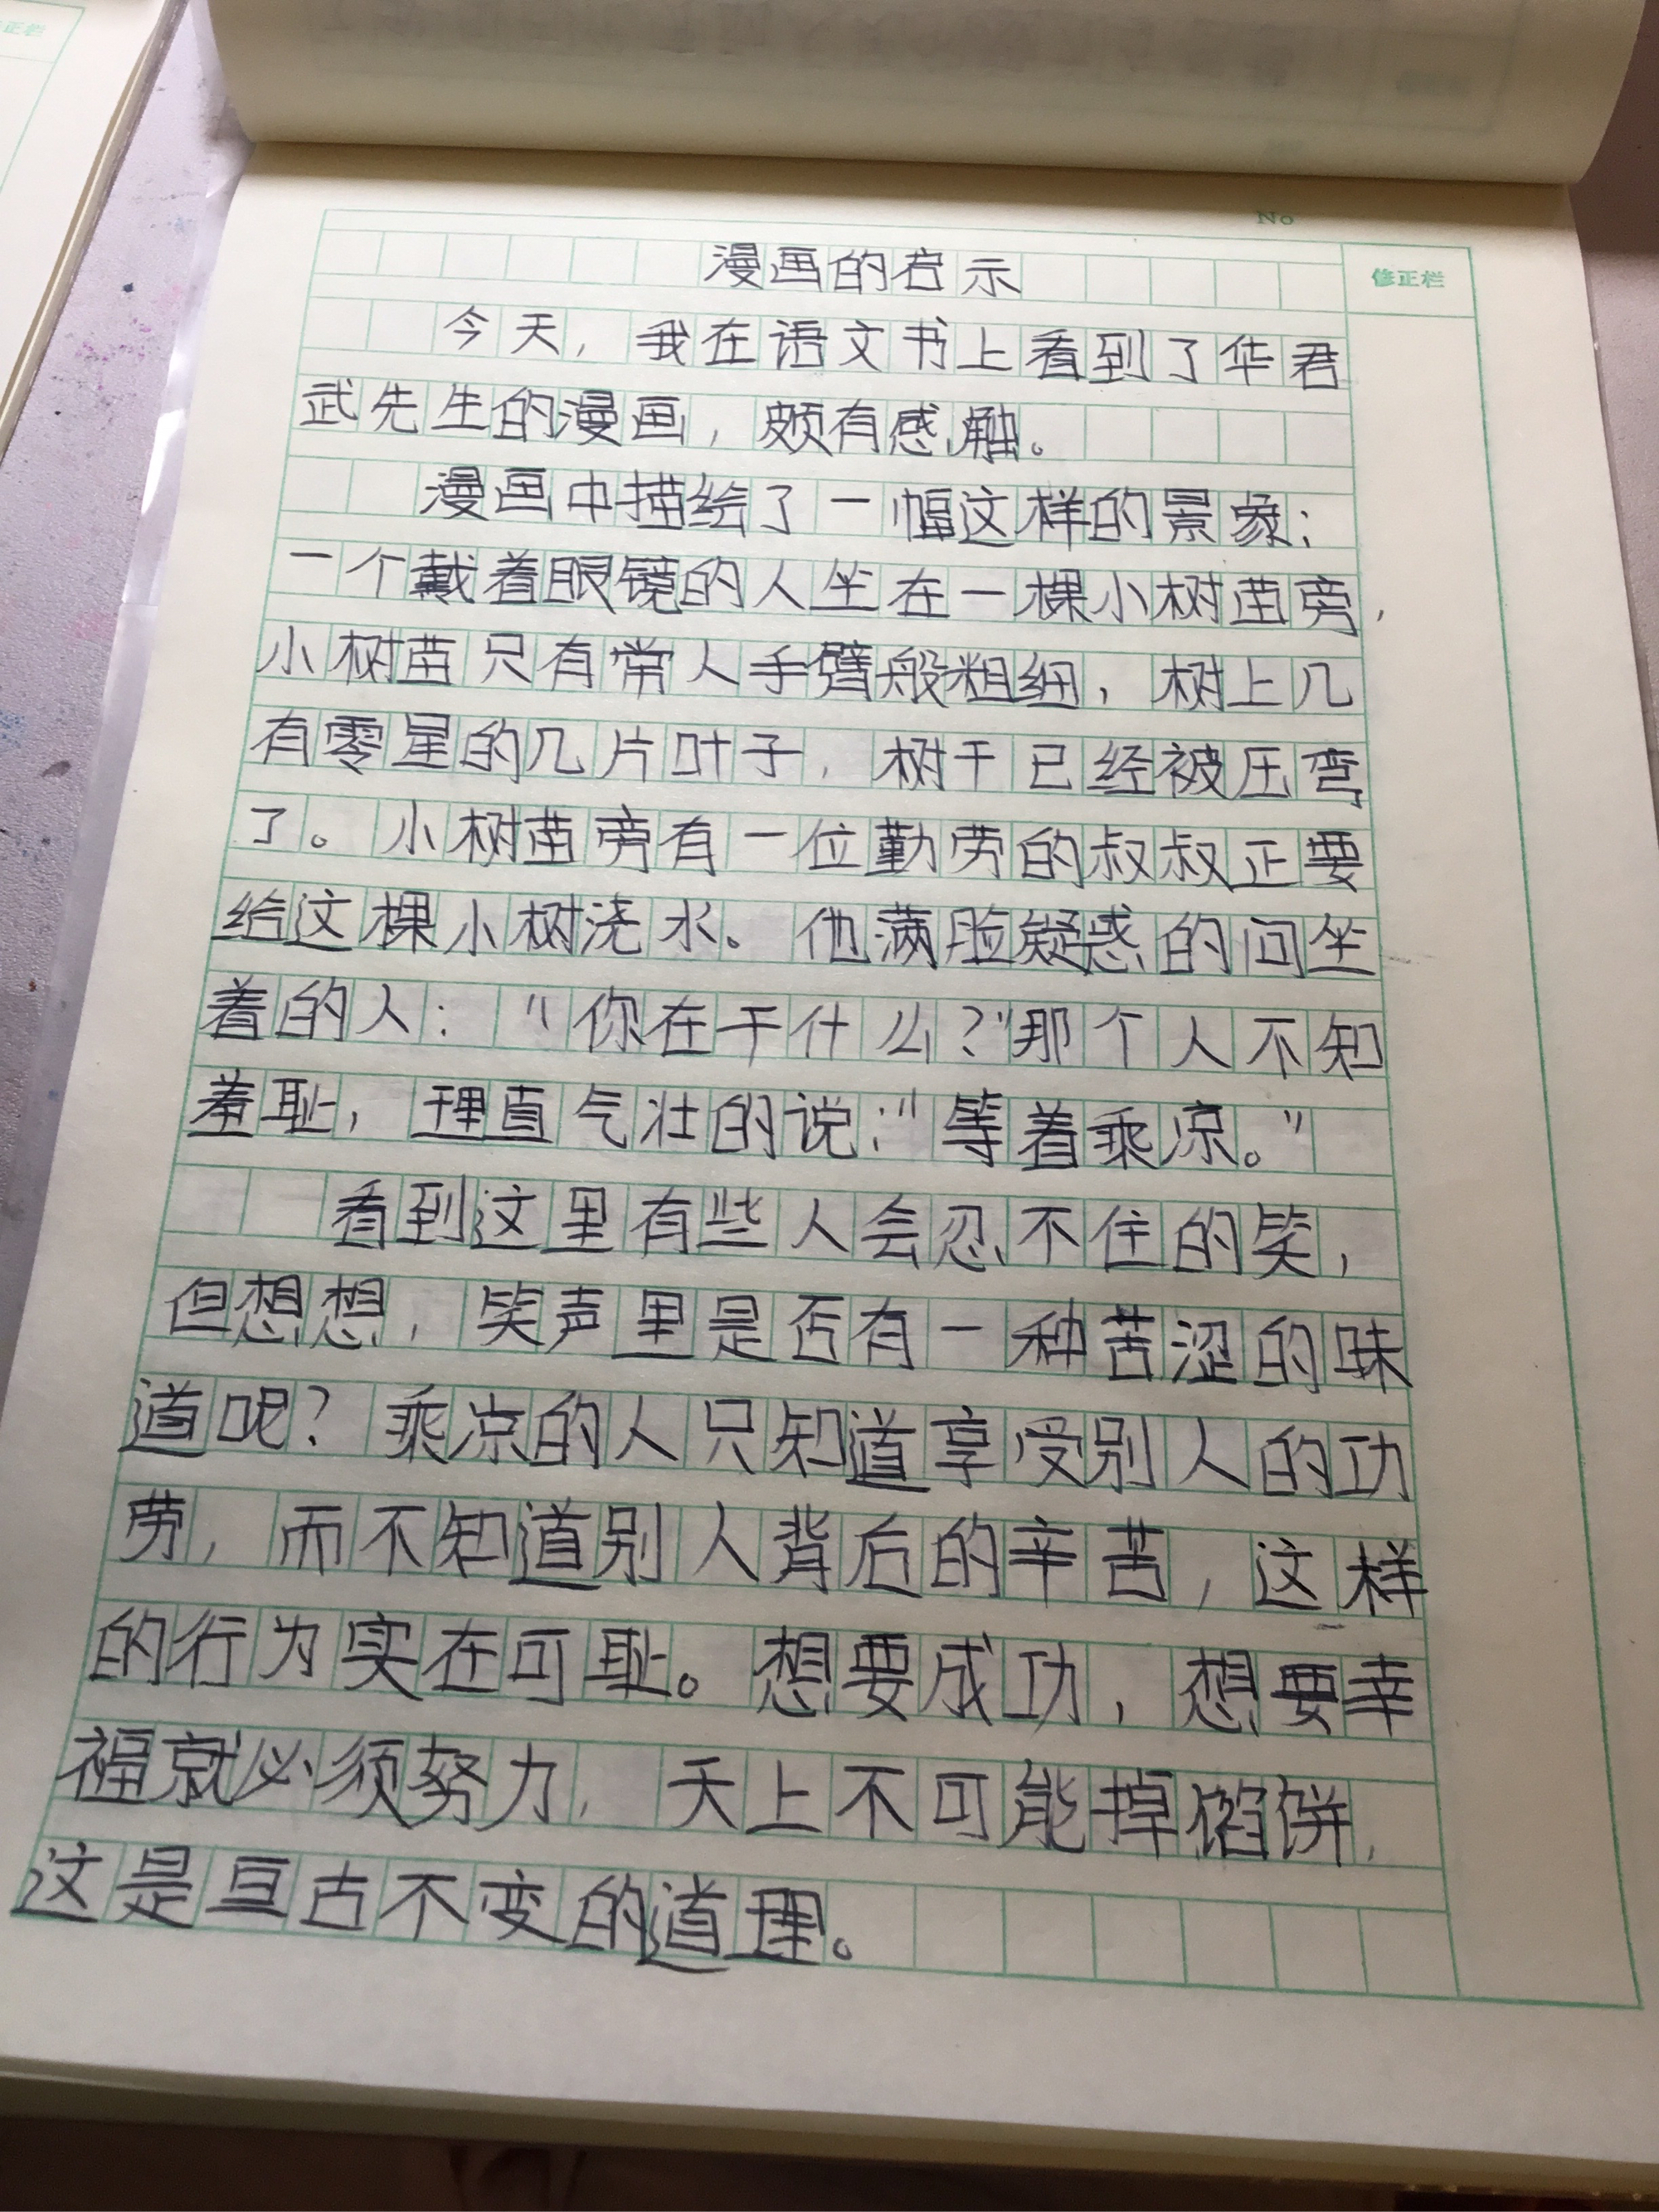 正栏
No
修正栏
漫画的启示
今天，我在语文书上看到了华君
武先生的漫画，颇有感触。
漫画中描绘了一幅这样的景象：
一个戴着眼镜的人坐在一棵小树苗旁，
小树苗只有常人手臂般粗细，树上几
有零星的几片叶子，树干已经被压弯
了。小树苗旁有一位勤劳的叔叔正要
给这棵小树浇水。他满脸疑惑的问坐
着的人：“你在干什么？”那个人不知
羞耻，理直气壮的说：“等着乘凉。”
看到这里有些人会忍不住的笑，
但想想，笑声里是否有一种苦涩的味
道呢？乘凉的人只知道享受别人的功
劳，而不知道别人背后的辛苦，这样
的行为实在可耻。想要成功，想要幸
福就必须努力，天上不可能掉馅饼，
这是亘古不变的道理。